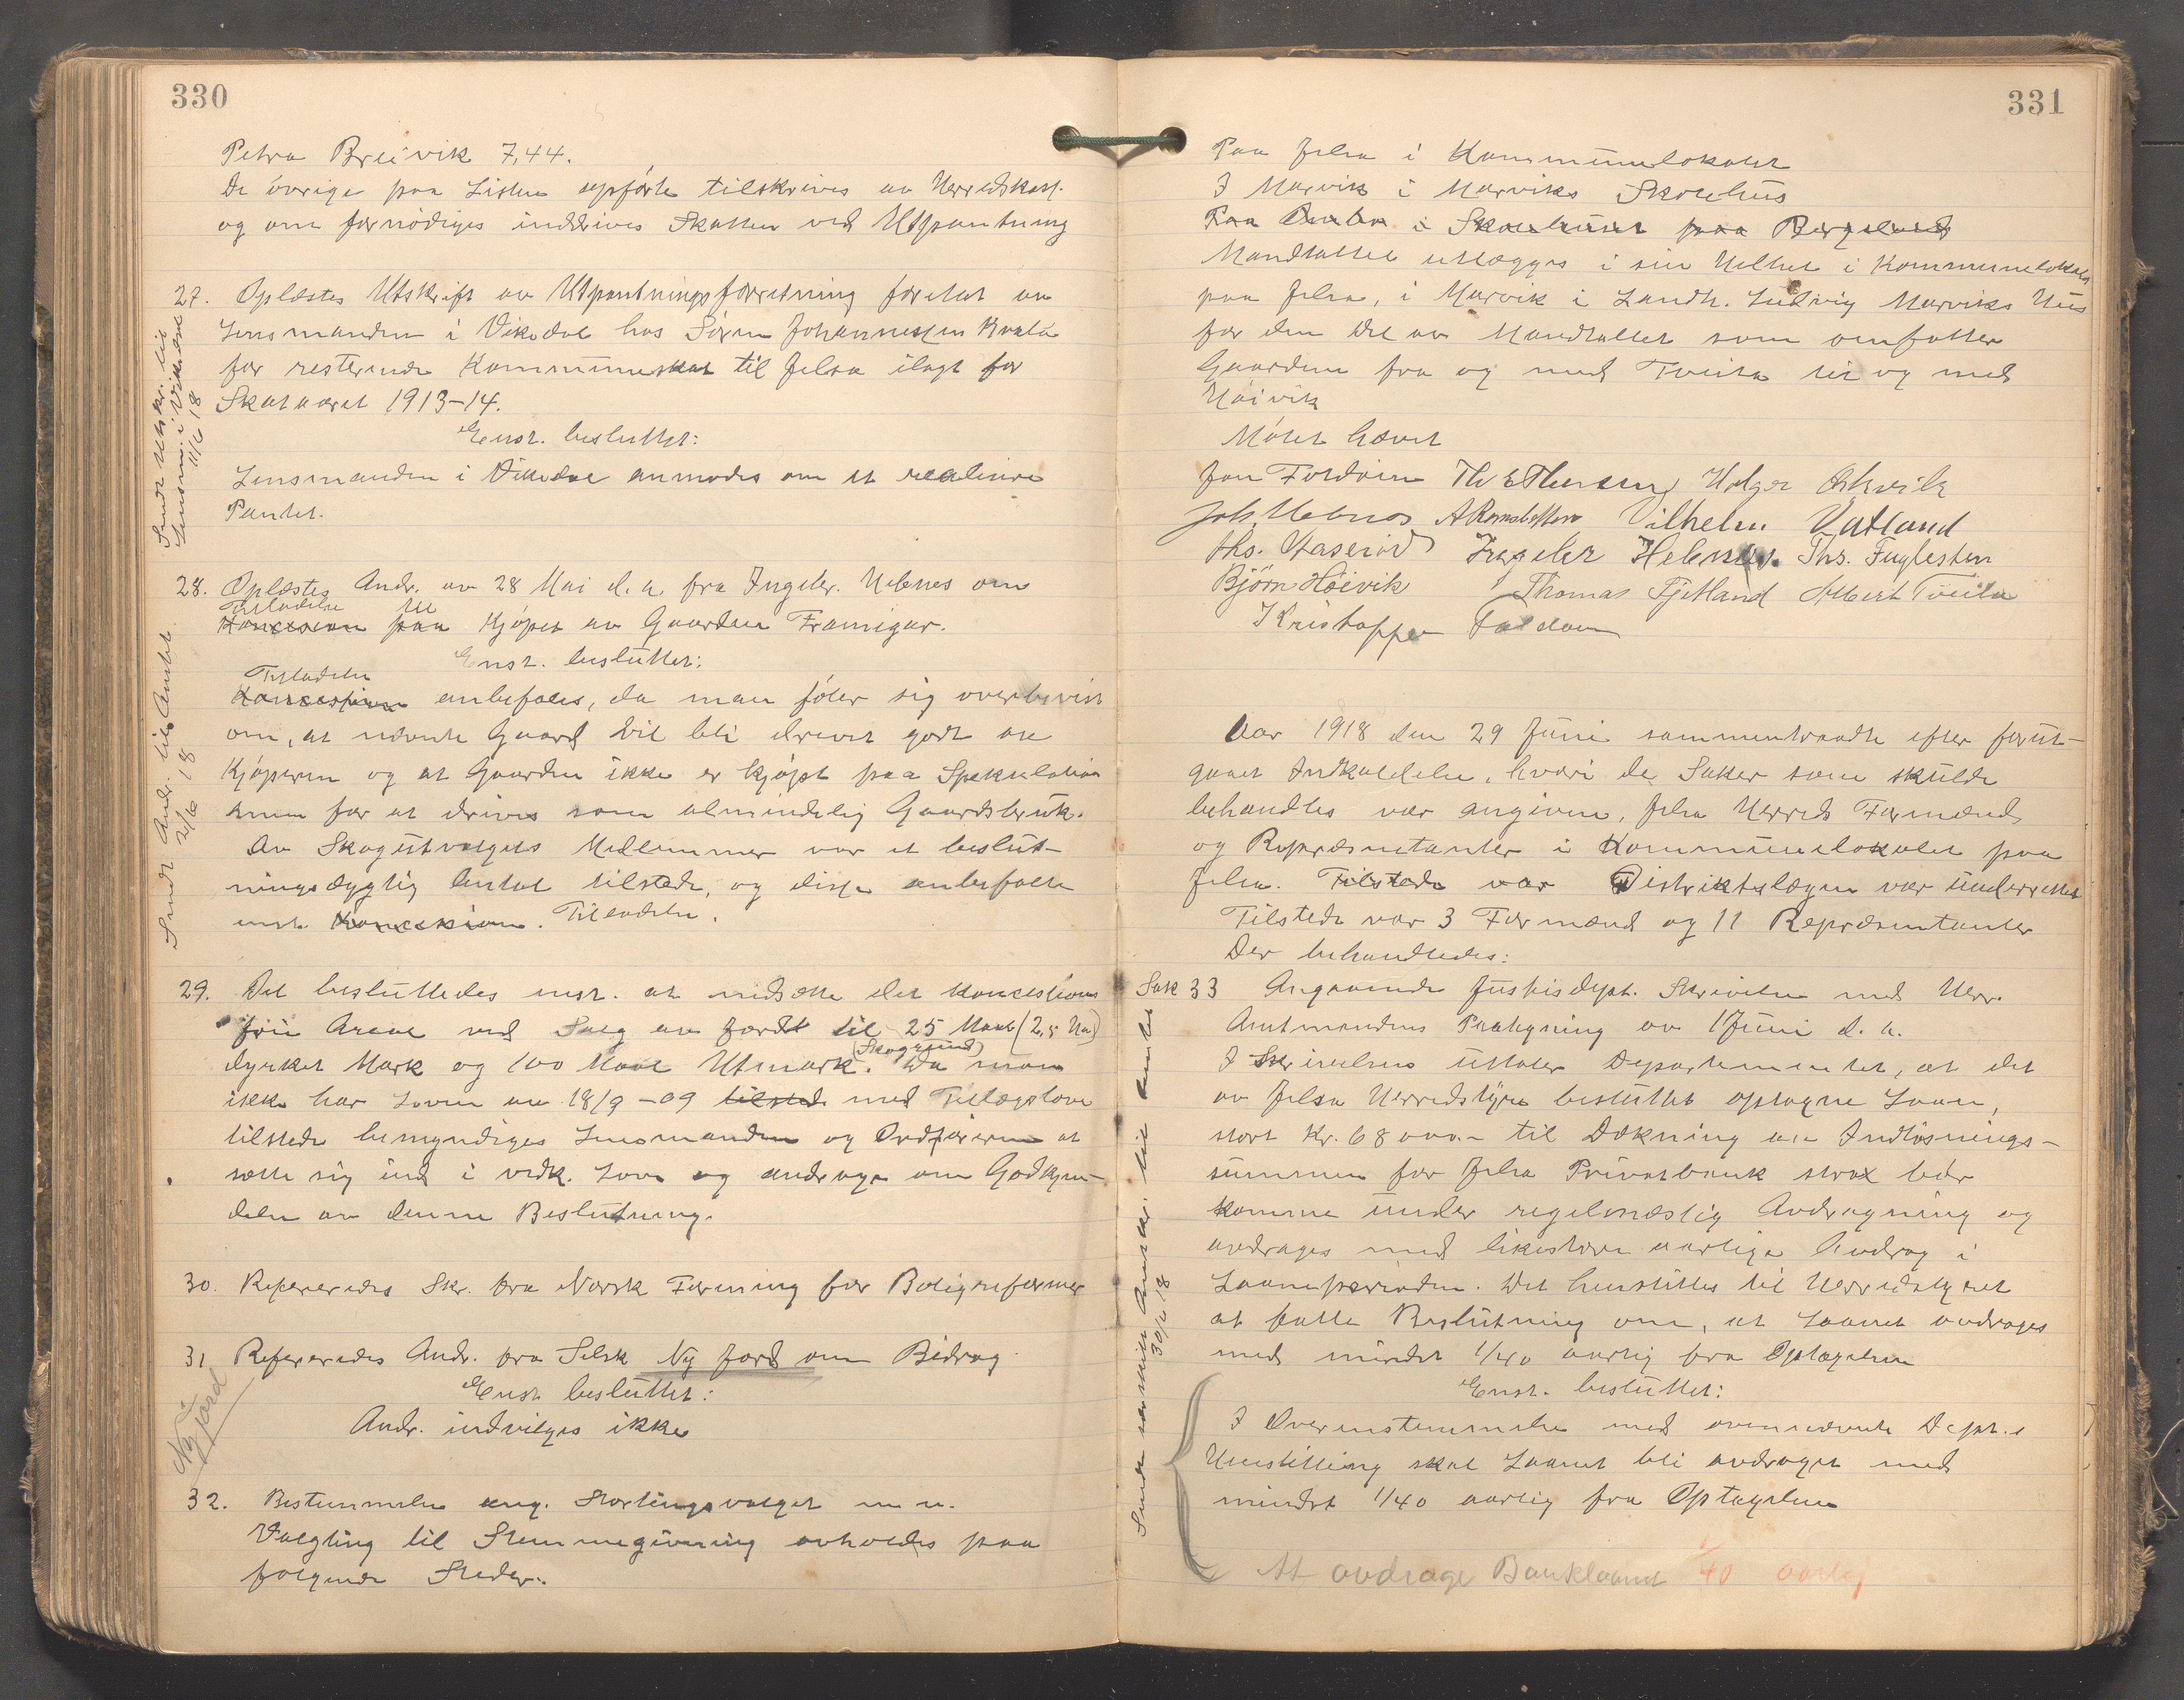 330
Petra Breivik 7,44.
De övrige paa Listen opförte tilskrives av Herredskass.
og om fornödiges inddrives Skatten ved Utpantning
27. Oplæstes Utskrift av Utpantningsforretning foretat av
Lensmanden i Vikedal hos Sören Johannessen Kvala
for resterende Kommuneskat til Jelsa ilagt for
Skataaret 1913-14.
Enst. besluttet:
Lensmanden i Vikedal anmodes om at realisere
Pantet.
Sendt Utskr. til
Lensm. i Vikedal
11/6 18
28. Oplæstes Andr. av 28 Mai d.a. fra Ingebr. Hebnes om
Tilladelse til
Koncession paa Kjöpet av Gaarden Framigar.
Enst. besluttet:
Tilladelse
Koncession anbefales, da man föler sig overbevist
om, at nævnte Gaard vil bli drevet godt av
Kjöperen og at Gaarden ikke er kjöpt paa Spekulation
men for at drives som almindelig Gaardsbruk.
Av Skogutvalgets Medlemmer var et beslut-
ningsdygtig Antal tilstede, og disse anbefalte
enst. Koncession. Tilladelse.
Sendt Andr. til Amtet
21/6 18
29. Det besluttedes enst. at nedsætte det koncessions
frie Areal ved Salg av Jord til 25 Maal (2,5 Ha)
dyrket Mark og 100 Maal Utmark. (Skoggrund) Da man
ikke har Loven av 18/9-09 tilsted med Tillægslove
tilstede bemyndiges Lensmanden og Ordföreren at
sætte sig ind i vedk. Love og andrage om Godkjen-
delse av denne Beslutning.
30. Refereredes Skr. fra Norsk Forening for Boligreformer
31 Refereredes Andr. fra Selsk Ny Jord om Bidrag
Enst. besluttet:
Andr. indvilges ikke
Ny Jord
32. Bestemmelse ang. Stortingsvalget m.v.
Valgting til Stemmegivning avholdes paa
følgende Steder:
331
Paa Jelsa i Kommunelokalet
I Marvik i Marviks Skolehus
Paa Ombo i Skolehuset paa Bergeland
Mandtallet utlægges i sin Helhet i Kommunelokalet
paa Jelsa, i Marvik i Landh. Ludvig Marviks Hus
for den Del av Mandtallet som omfatter
Gaardene fra og med Tveita til og med
Höivik
Mötet hævet
Jon Foldöen Th E Thensen Holger Askvik
Joh. Hebnes A Ramsbotten Vilhelm Vatland
Ths. Staseröd Ingebr Hebnes. Ths. Fuglesten
Björn Höivik Thomas Fjetland Albert Tveita
Kristoffer Foldöen
Aar 1918 den 29 Juni sammentraadte efter forut-
gaaet Indkaldelse, hvori de Saker som skulde
behandles var angivne, Jelsa Herreds Formænd
og Repræsentanter i Kommunelokalet paa
Jelsa. Tilstede var Distriktslægen var underrettet
Tilstede var 3 Formænd og 11 Repræsentanter
Der behandledes:
Sak 33 Angaaende Justisdept. Skrivelse med Herr.
Amtmandens Paategning av 1 Juni d.a.
I Skrivelsen uttaler Departementet, at det
av Jelsa Herredstyre besluttet optagne Laan,
stort Kr. 68 000.- til Dækning av Indlösnings-
summen for Jelsa Privatbank strax bör
komme under regelmæssig Avdragning og
avdrages med likestore aarlige Avdrag i
Laaneperioden. Det henstilles til Herredstyret
at fatte Beslutning om, at Laanet avdrages
med mindst 1/40 aarlig fra Optagelsen
Enst. besluttet:
I Overenstemmelse med ovennævnte Dept.s
Henstilling skal Laanet bli avdraget med
mindst 1/40 aarlig fra Optagelsen
30/6 18
At avdrage Banklaanet 1/40 aarlig